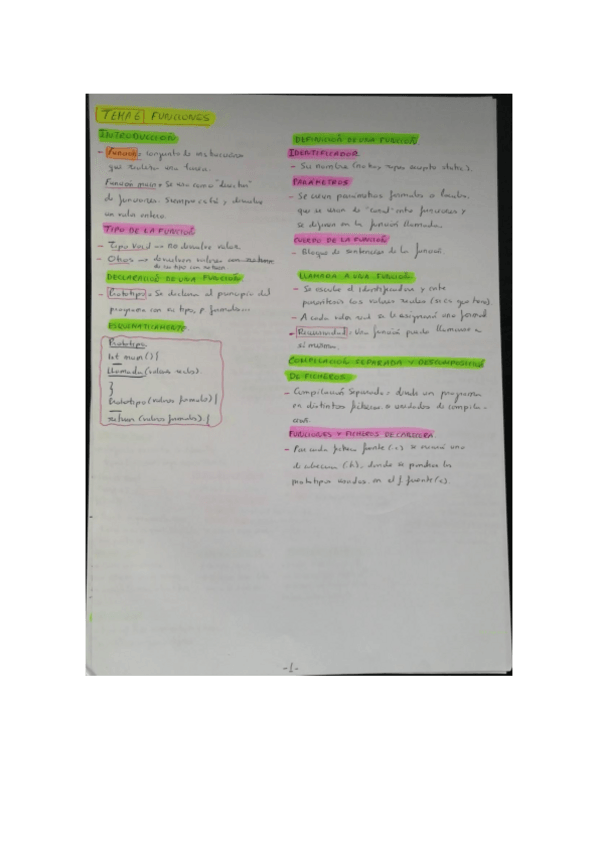 TEMA 6 FUNCIONES
INTRODUCCIÓN
- Función: conjunto de instrucciones
que realizan una tarea.
Función main: Se usa como "director"
de funciones. Siempre está y devuelve
un valor entero.
TIPO DE LA FUNCIÓN
- Tipo Void → no devuelve valor
- Otros → devuelven valores
de su tipo con return
DECLARACIÓN DE UNA FUNCIÓN
- Prototipo: Se declara al principio del
programa con su tipo, p. formales...
ESQUEMÁTICAMENTE
Prototipo
int main () {
llamada (valores reales).
}
Prototipo (valores formales) {
return (valores formales). {
DEFINICIÓN DE UNA FUNCIÓN
IDENTIFICADOR
- Su nombre
PARÁMETROS
- Se usan parámetros formales o locales,
que se usan de "canal" entre funciones y
se definen en la función llamada.
CUERPO DE LA FUNCIÓN
- Bloque de sentencias de la función.
LLAMADA A UNA FUNCIÓN
- Se escribe el identificador y entre
paréntesis los valores reales (si es que tiene).
- A cada valor real se le asignará uno formal
- Recursividad: Una función puede llamarse a
sí misma.
COMPILACIÓN SEPARADA Y DESCOMPOSICIÓN
DE FICHEROS
- Compilación Separada: dividir un programa
en distintos ficheros o unidades de compila-
ción.
FUNCIONES Y FICHEROS DE CABECERA
- Por cada fichero fuente (.c) se creará uno
de cabecera (.h), donde se pondrán los
prototipos usados en el f. fuente (.c).
-1-